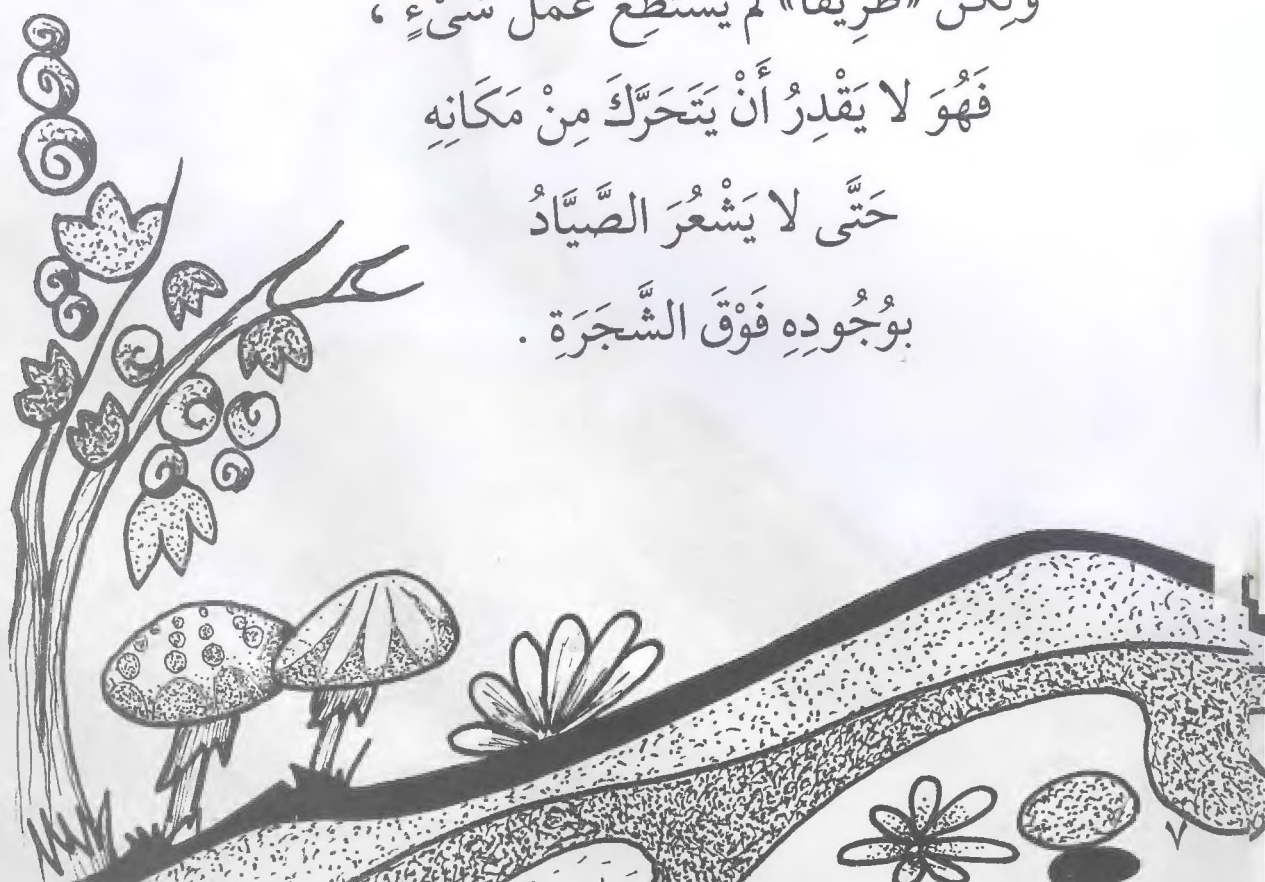 ولكن «ظريفا» لم يستطع عمل شىءٍ ،
فَهُوَ لا يَقْدِرُ أَنْ يَتَحَرَّكَ مِنْ مَكَانِهِ
حَتَّى لا يَشْعُرَ الصَّيَّادُ
بوُجُودِهِ فَوْقَ الشَّجَرَةِ .